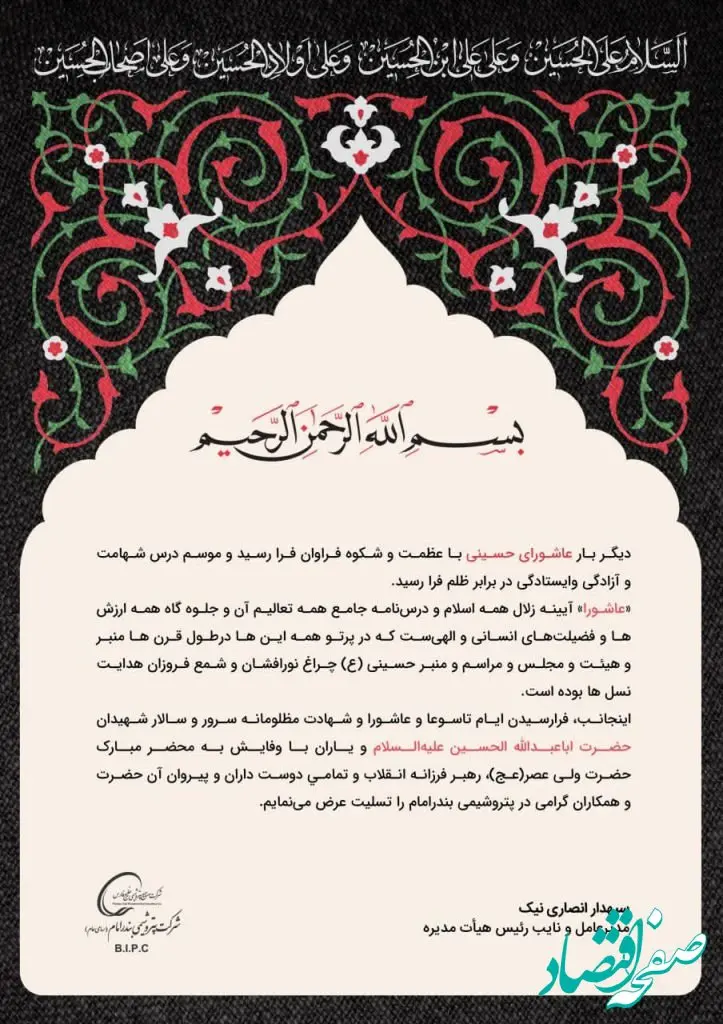 اَلسَّلامُ عَلَى الْحُسَيْنِ وَ عَلى عَلِيِّ ابْنِ الْحُسَيْنِ وَ عَلى اَوْلادِ الْحُسَيْنِ وَ عَلى اَصْحابِ الْحُسَيْنِ
بسم الله الرحمن الرحیم
دیگر بار عاشورای حسینی با عظمت و شکوه فراوان فرا رسید و موسم درس شهامت
و آزادگی وایستادگی در برابر ظلم فرا رسید.
«عاشورا» آیینه زلال همه اسلام و درس‌نامه جامع همه تعالیم آن و جلوه گاه همه ارزش
ها و فضیلت‌های انسانی و الهی‌ست که در پرتو همه این ها درطول قرن ها منبر
و هیئت و مجلس و مراسم و منبر حسینی (ع) چراغ نورافشان و شمع فروزان هدایت
نسل ها بوده است.
اینجانب، فرارسیدن ایام تاسوعا و عاشورا و شهادت مظلومانه سرور و سالار شهیدان
حضرت اباعبدالله الحسین علیه‌السلام و یاران با وفایش به محضر مبارک
حضرت ولی عصر(عج)، رهبر فرزانه انقلاب و تمامي دوست داران و پیروان آن حضرت
و همکاران گرامی در پتروشیمی بندرامام را تسلیت عرض می‌نمایم.
سهدار انصاری نیک
مدیرعامل و نایب رئیس هیأت مدیره
شرکت صنایع پتروشیمی خلیج فارس
شرکت پتروشیمی بندر امام (سهامی عام)
B.I.P.C
صفحه اقتصاد